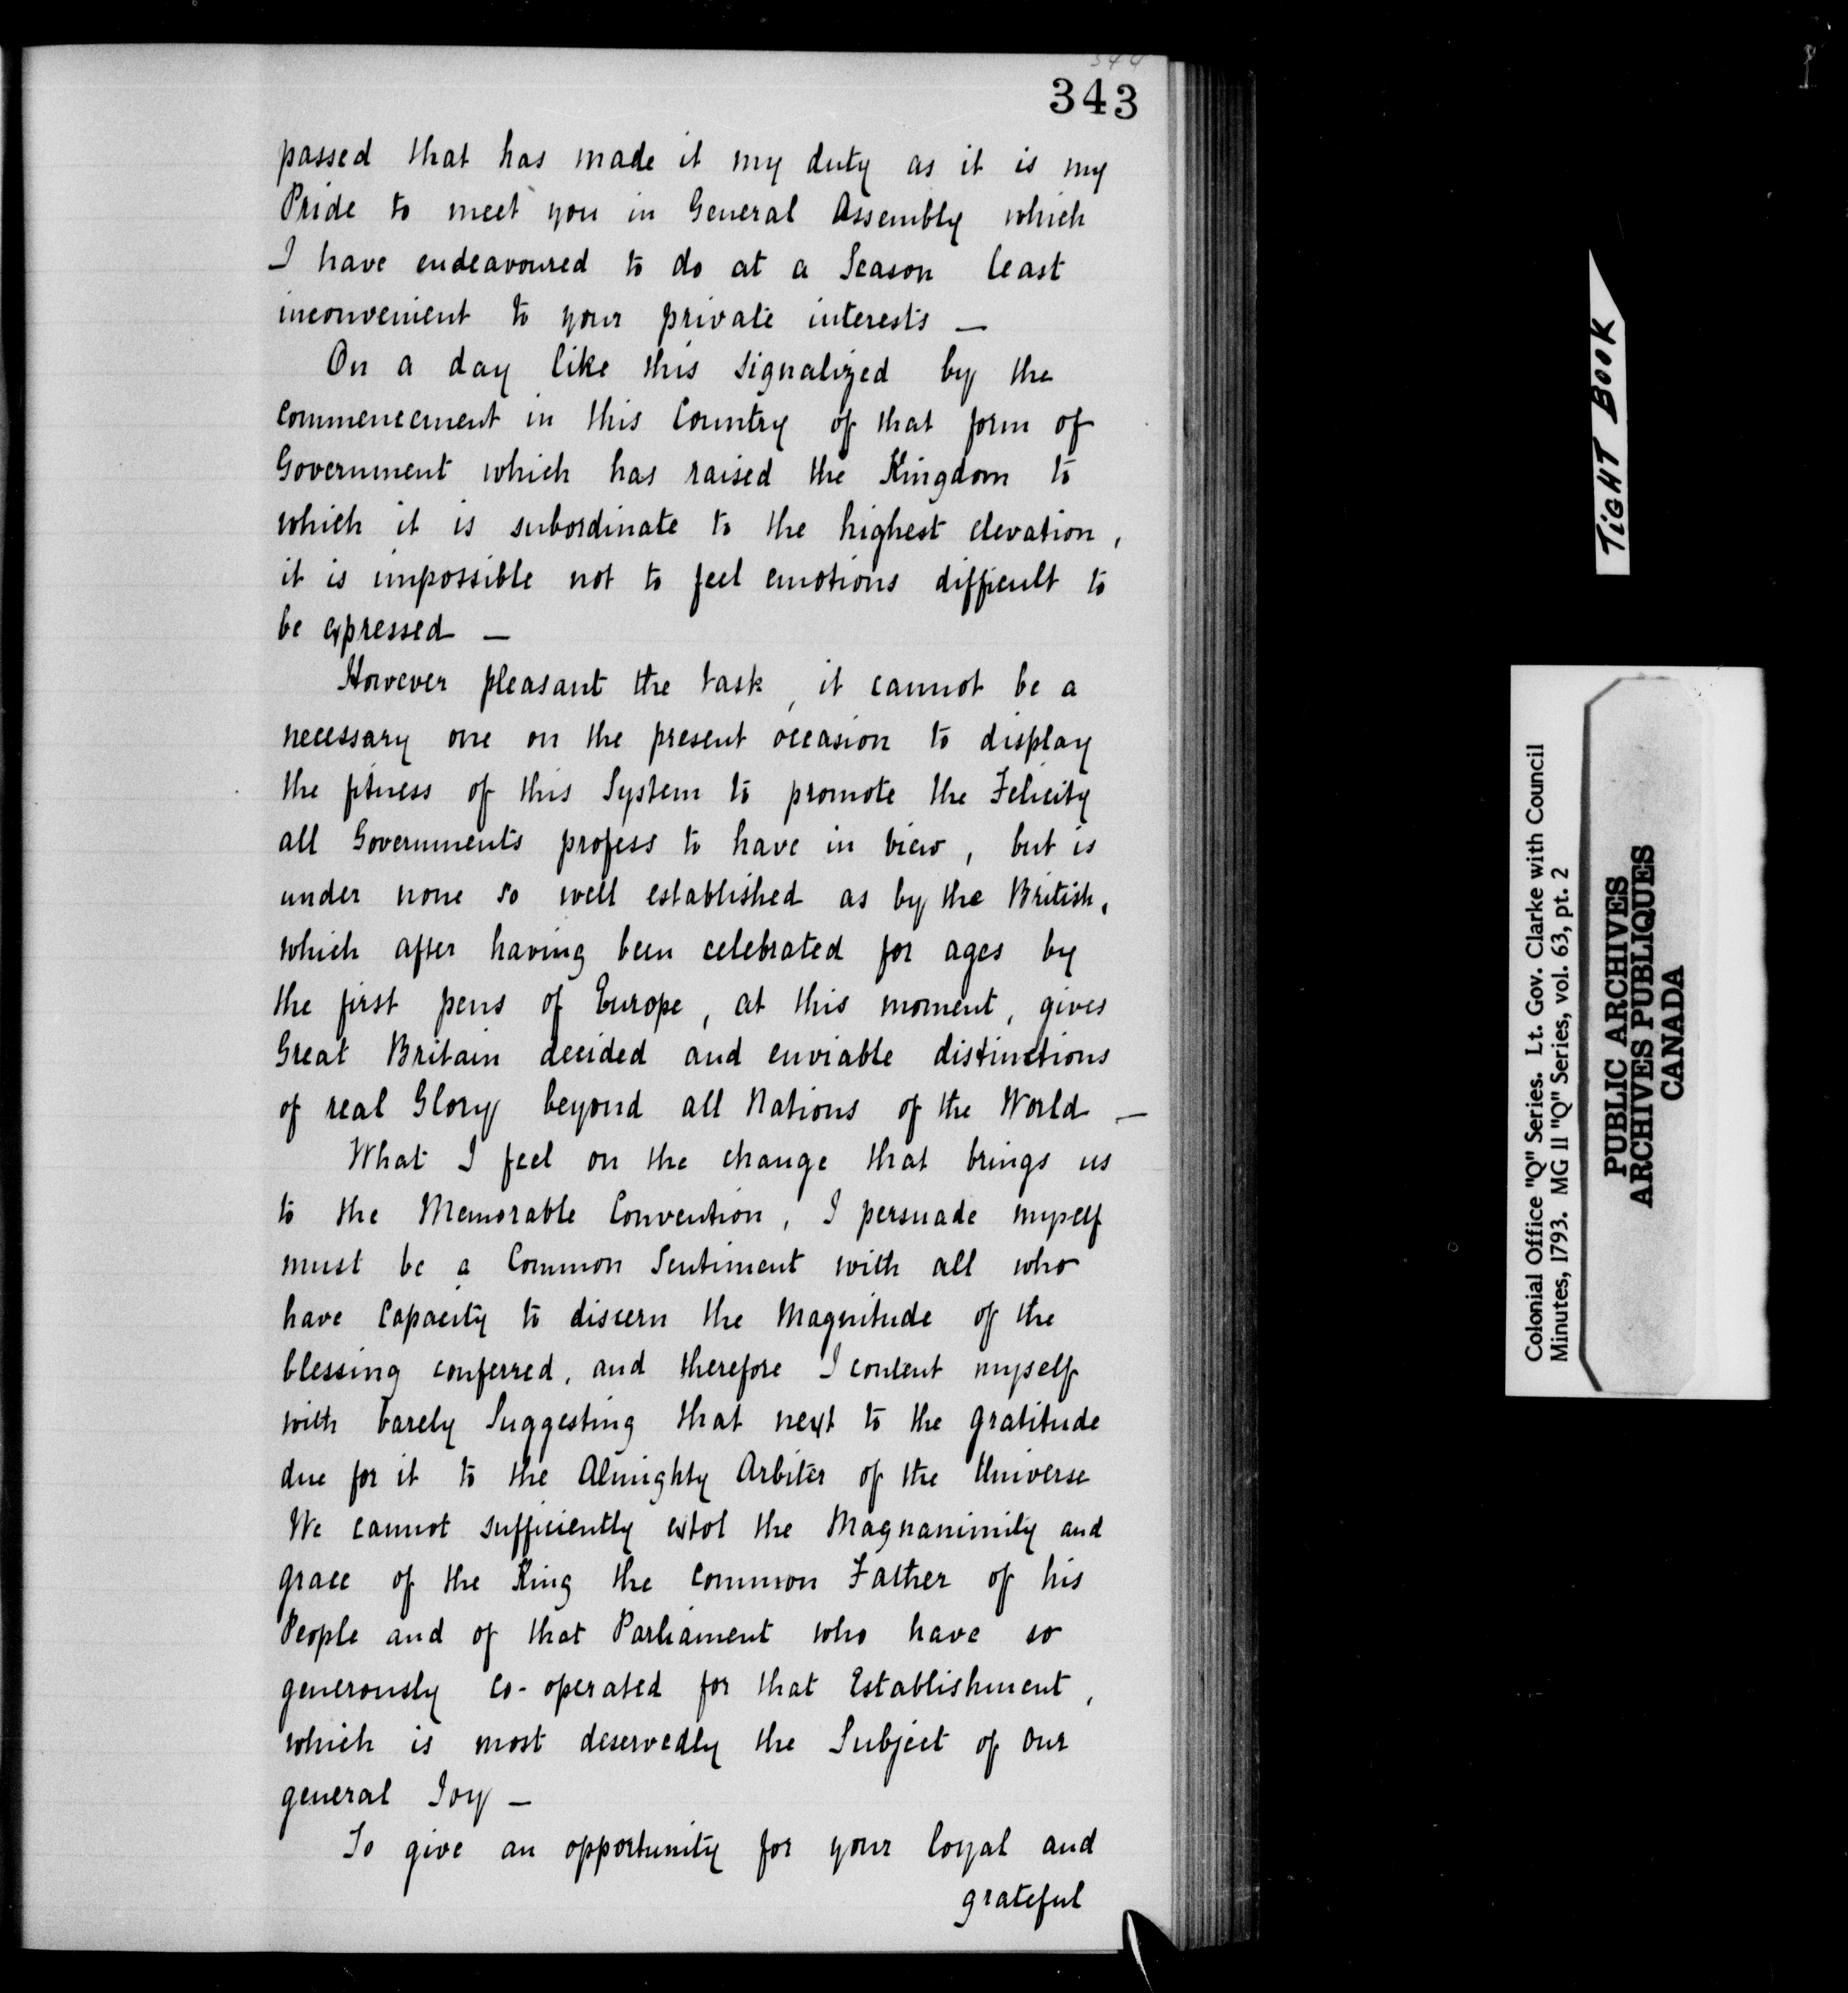 344
343
passed that has made it my duty as it is my
Pride to meet you in General Assembly which
I have endeavoured to do at a Season least
inconvenient to your private interests —
On a day like this signalized by the
Commencement in this Country of that form of
Government which has raised the Kingdom to
which it is subordinate to the highest elevation,
it is impossible not to feel emotions difficult to
be expressed —
However pleasant the task, it cannot be a
necessary one on the present occasion to display
the fitness of this System to promote the Felicity
all Governments profess to have in view, but is
under none so well established as by the British,
which after having been celebrated for ages by
the first pens of Europe, at this moment, gives
Great Britain decided and enviable distinctions
of real Glory beyond all Nations of the World —
What I feel on the change that brings us
to the Memorable Convention, I persuade myself
must be a Common Sentiment with all who
have Capacity to discern the Magnitude of the
blessing conferred, and therefore I content myself
with barely Suggesting that next to the gratitude
due for it to the Almighty Arbiter of the Universe
We cannot sufficiently extol the Magnanimity and
grace of the King the Common Father of his
People and of that Parliament who have so
generously co-operated for that Establishment,
which is most deservedly the Subject of our
general Joy —
To give an opportunity for your loyal and
grateful
TIGHT BOOK
Colonial Office "Q" Series. Lt. Gov. Clarke with Council
Minutes, 1793. MG 11 "Q" Series, vol. 63, pt. 2
PUBLIC ARCHIVES
ARCHIVES PUBLIQUES
CANADA